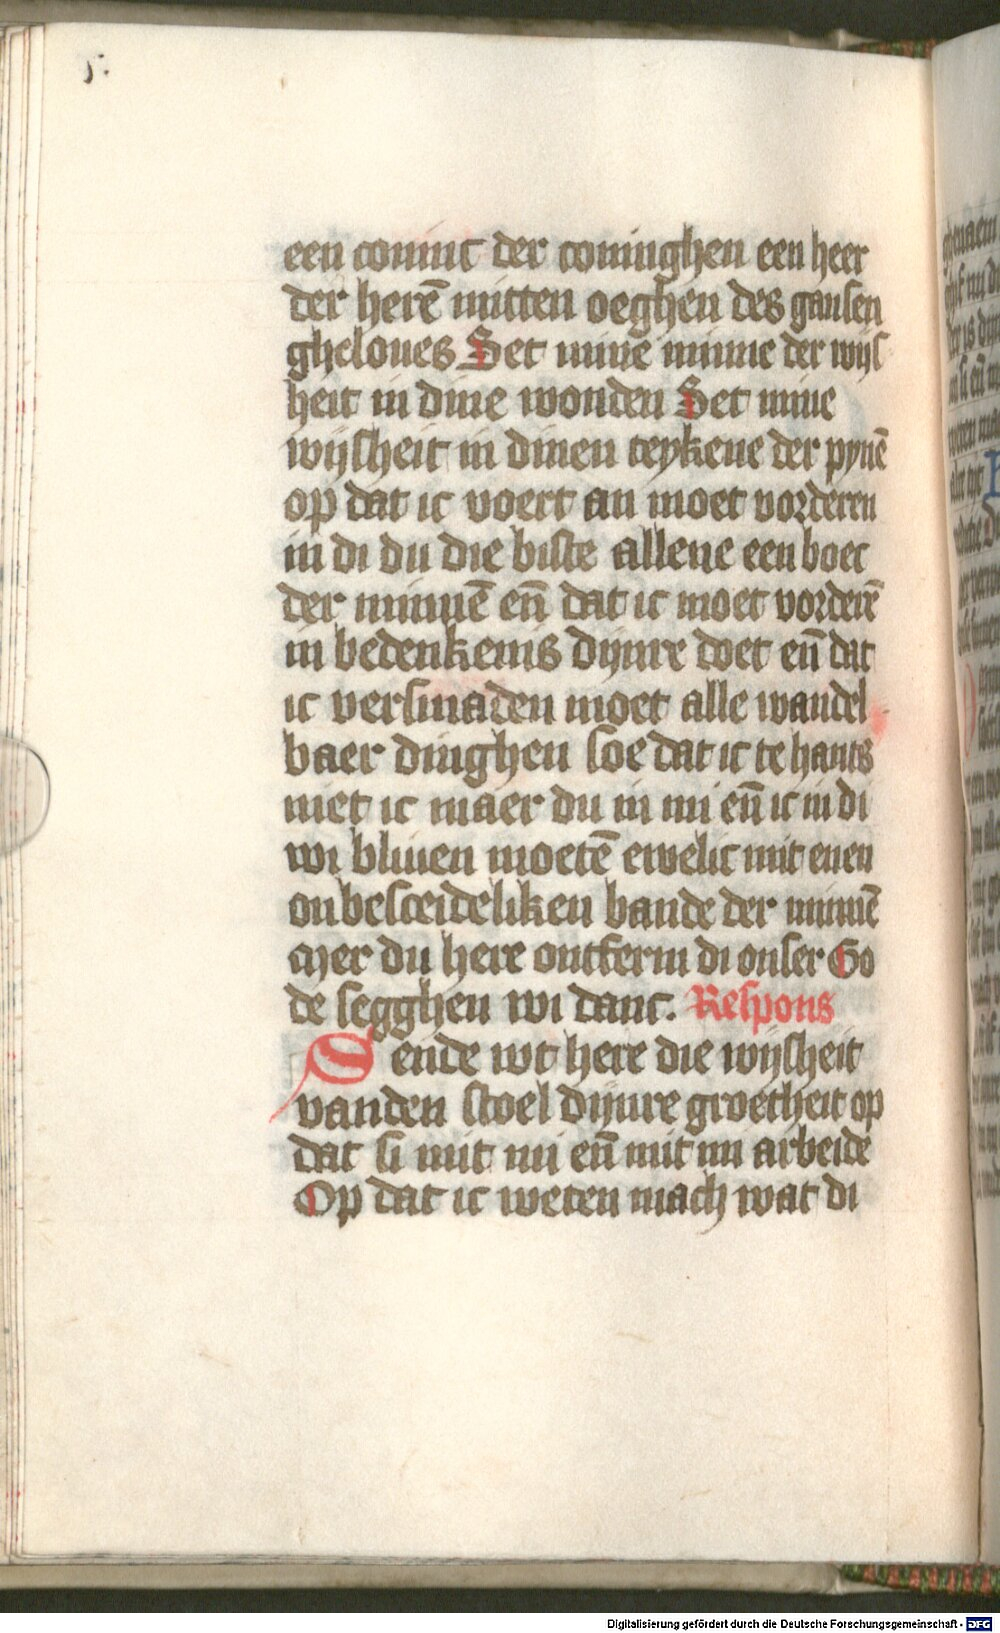 een coninc der coninghen een heer
der herē mitten oeghen des gansen
gheloues Set mine minne der wijs
heit in dine wonden Set mine
wijsheit in dinen teykene der pynē
op dat ic voert an moet vorderen
in di du die biste allene een boec
der minnē en̄ dat ic moet vorderē
in bedenkenis dijnre doet en̄ dat
ic versmaden moet alle wandel
baer dinghen soe dat ic te hants
niet ic maer du in mi en̄ ic in di
wi bliuen moetē ewelic mit enen
onbesceideliken bande der minnē
Mer du here ontferm di onser Go
de segghen wi danc. Respons
Sende wt here die wijsheit
vanden stoel dijnre groetheit op
dat si mit mi en̄ mit mi arbeide
Op dat ic weten mach wat di
Digitalisierung gefördert durch die Deutsche Forschungsgemeinschaft - DFG